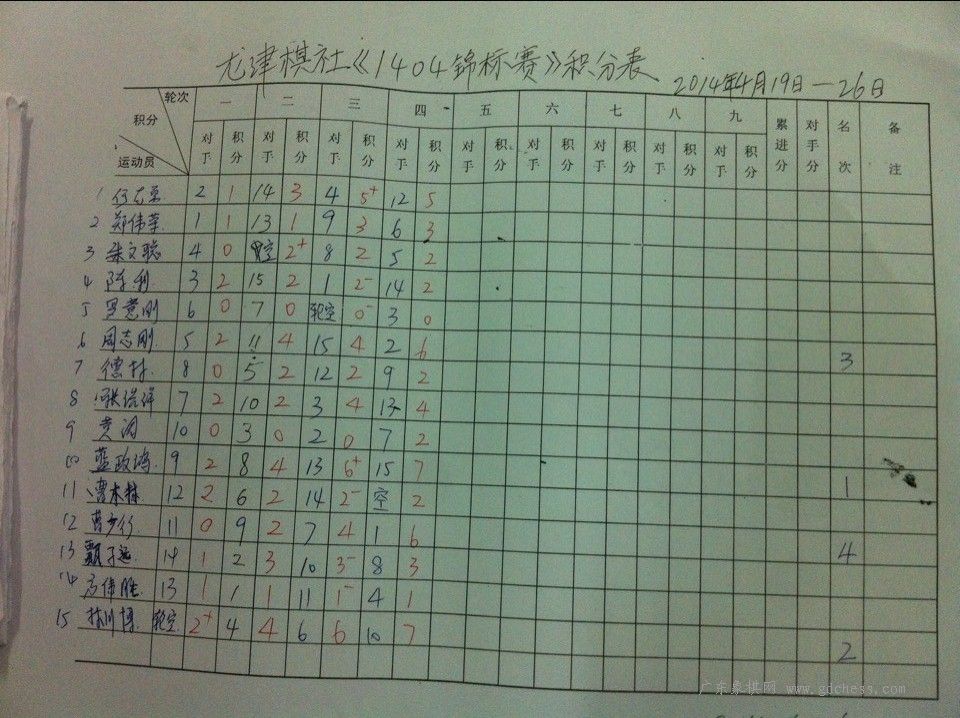 龙津棋社《1404锦标赛》积分表
2014年4月19日—26日
轮次 一 二 三 四 五 六 七 八 九 累进分 对手分 名次 备注
积分
运动员 对于 积分 对于 积分 对于 积分 对于 积分 对于 积分 对于 积分 对于 积分 对于 积分 对于 积分
1 2 1 14 3 4 5+ 12 5
2 郑伟荣 1 1 13 1 9 3 6 3
3 朱文聪 4 0 空 2+ 8 2 5 2
4 陈利 3 2 15 2 1 2- 14 2
5 刚 6 0 7 0 轮空 0- 3 0
6 周志刚 5 2 11 4 15 4 2 6 3
7 德林 8 0 5 2 12 2 9 2
8 7 2 10 2 3 4 13 4
9 黄 10 0 3 0 2 0 7 2
10 蓝政 9 2 8 4 13 6+ 15 7 1
11 曹木林 12 2 6 2 14 2- 空 2
12 曹 11 0 9 2 7 4 1 6 4
13 14 1 2 3 10 3- 8 3
14 方伟胜 13 1 1 1 11 1- 4 1
15 林川博 轮空 2+ 4 4 6 6 10 7 2
广东象棋网 www.gdchess.com